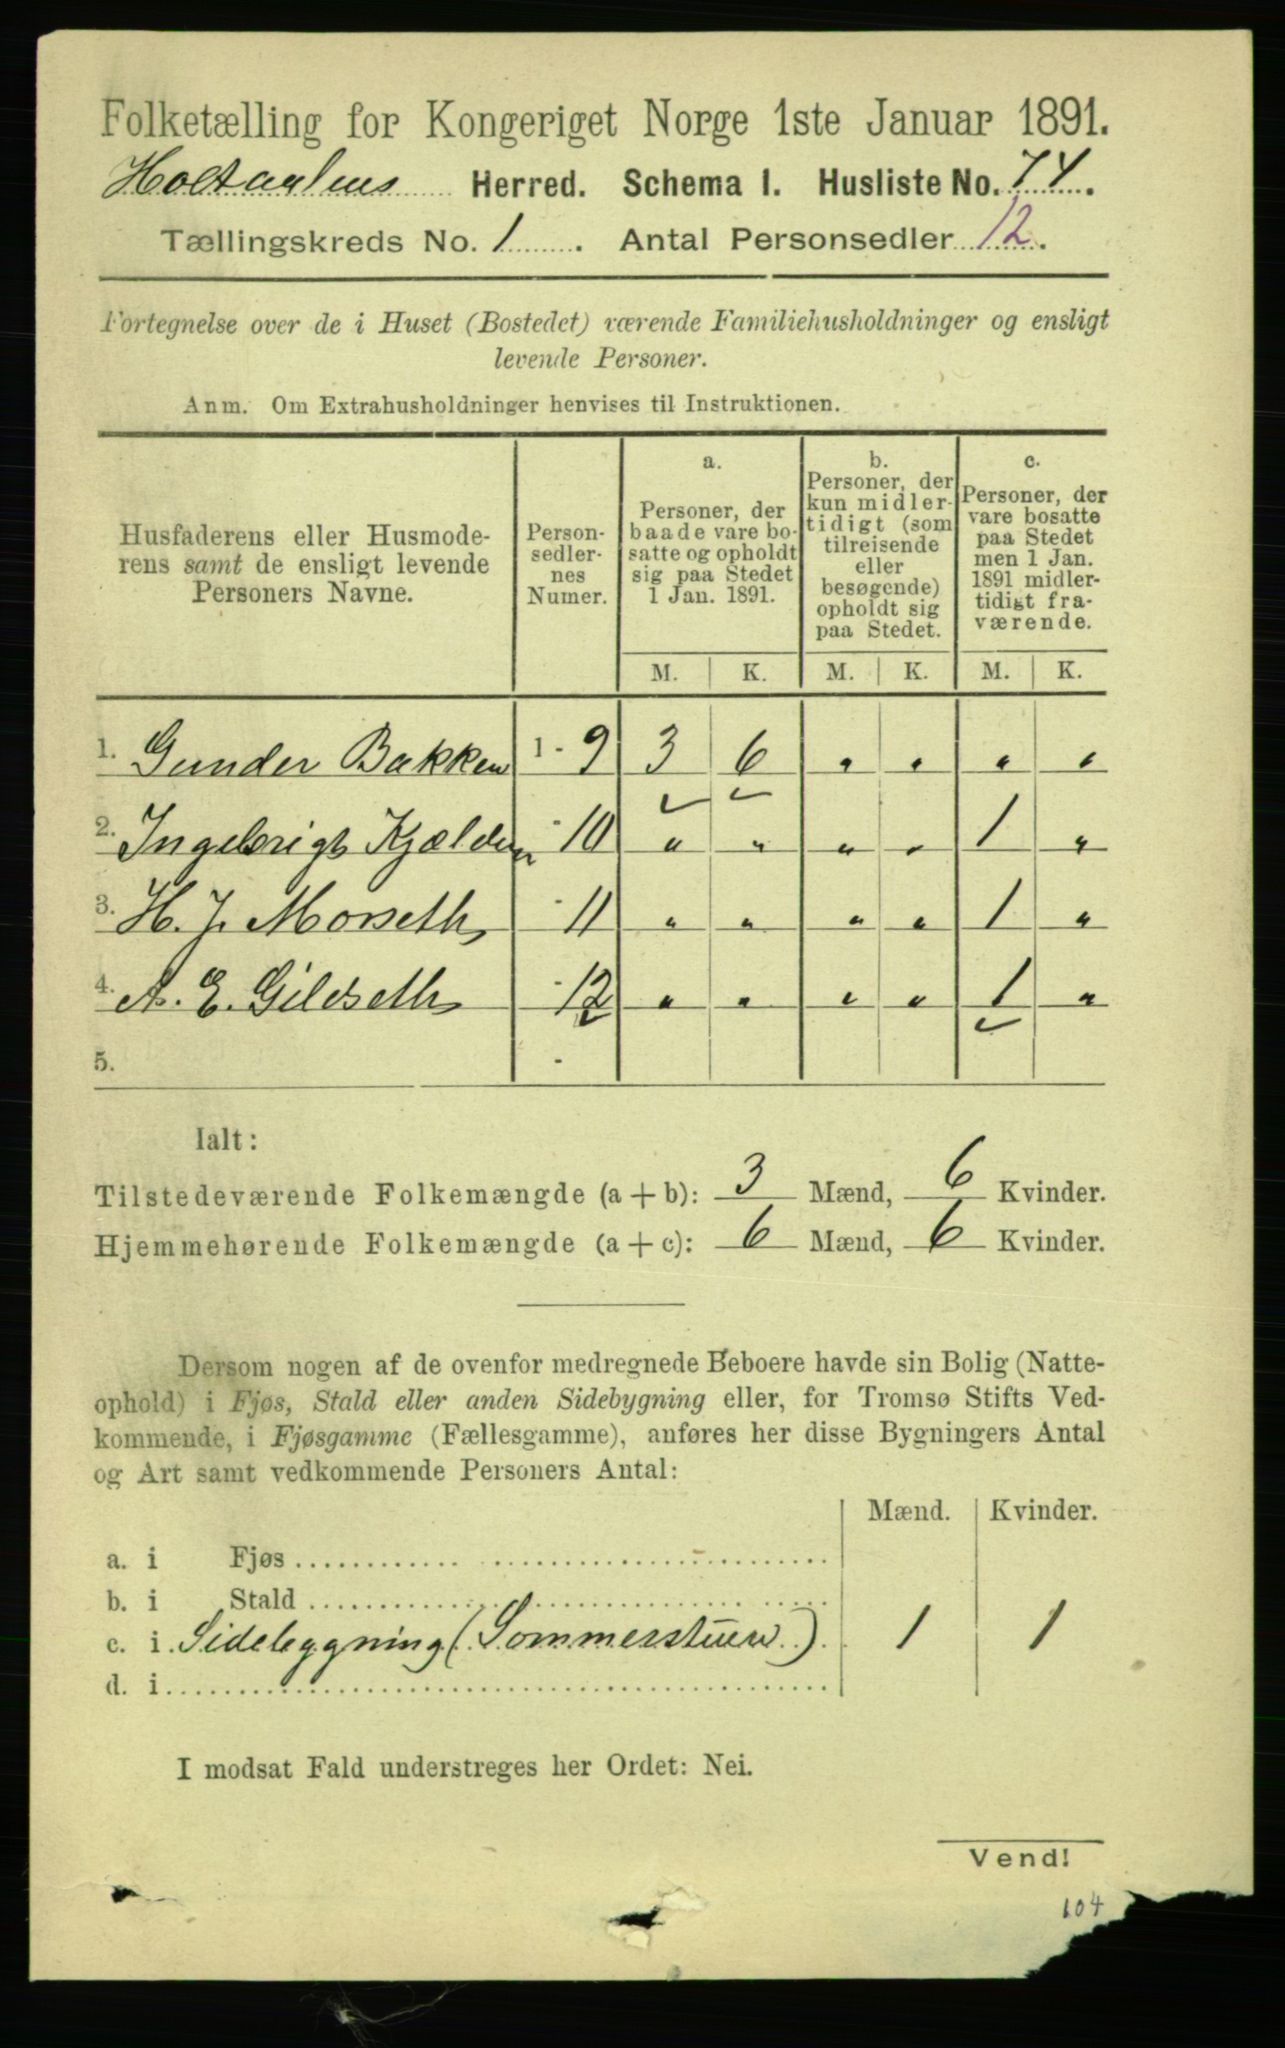 Folketælling for Kongeriget Norge 1ste Januar 1891.
Holtaalens Herred. Schema 1. Husliste No. 74.
Tællingskreds No. 1. Antal Personsedler 12.
Fortegnelse over de i Huset (Bostedet) værende Familiehusholdninger og ensligt
levende Personer.
Anm. Om Extrahusholdninger henvises til Instruktionen.
Husfaderens eller Husmode-
rens samt de ensligt levende
Personers Navne.
Person-
sedler-
nes
Numer.
a.
Personer, der
baade vare bo-
satte og opholdt
sig paa Stedet
1 Jan. 1891.
b.
Personer, der
kun midler-
tidigt (som
tilreisende
eller
besøgende)
opholdt sig
paa Stedet.
c.
Personer, der
vare bosatte
paa Stedet
men 1 Jan.
1891 midler-
tidigt fra-
værende.
M. K. M. K. M. K.
1. Gunder Bakken 1 - 9 3 6 " " " "
2. Ingebrigt Kjælden - 10 " " " " 1 "
3. H. J. Morseth - 11 " " " " 1 "
4. A. E. Gildseth - 12 " " " " 1 "
5. -
Ialt:
Tilstedeværende Folkemængde (a + b): 3 Mænd, 6 Kvinder.
Hjemmehørende Folkemængde (a + c): 6 Mænd, 6 Kvinder.
Dersom nogen af de ovenfor medregnede Beboere havde sin Bolig (Natte-
ophold) i Fjøs, Stald eller anden Sidebygning eller, for Tromsø Stifts Ved-
kommende, i Fjøsgamme (Fællesgamme), anføres her disse Bygningers Antal
og Art samt vedkommende Personers Antal:
Mænd. Kvinder.
a. i Fjøs
b. i Stald
c. i Sidebygning (Sommerstuen) 1 1
d. i
I modsat Fald understreges her Ordet: Nei.
Vend!
104